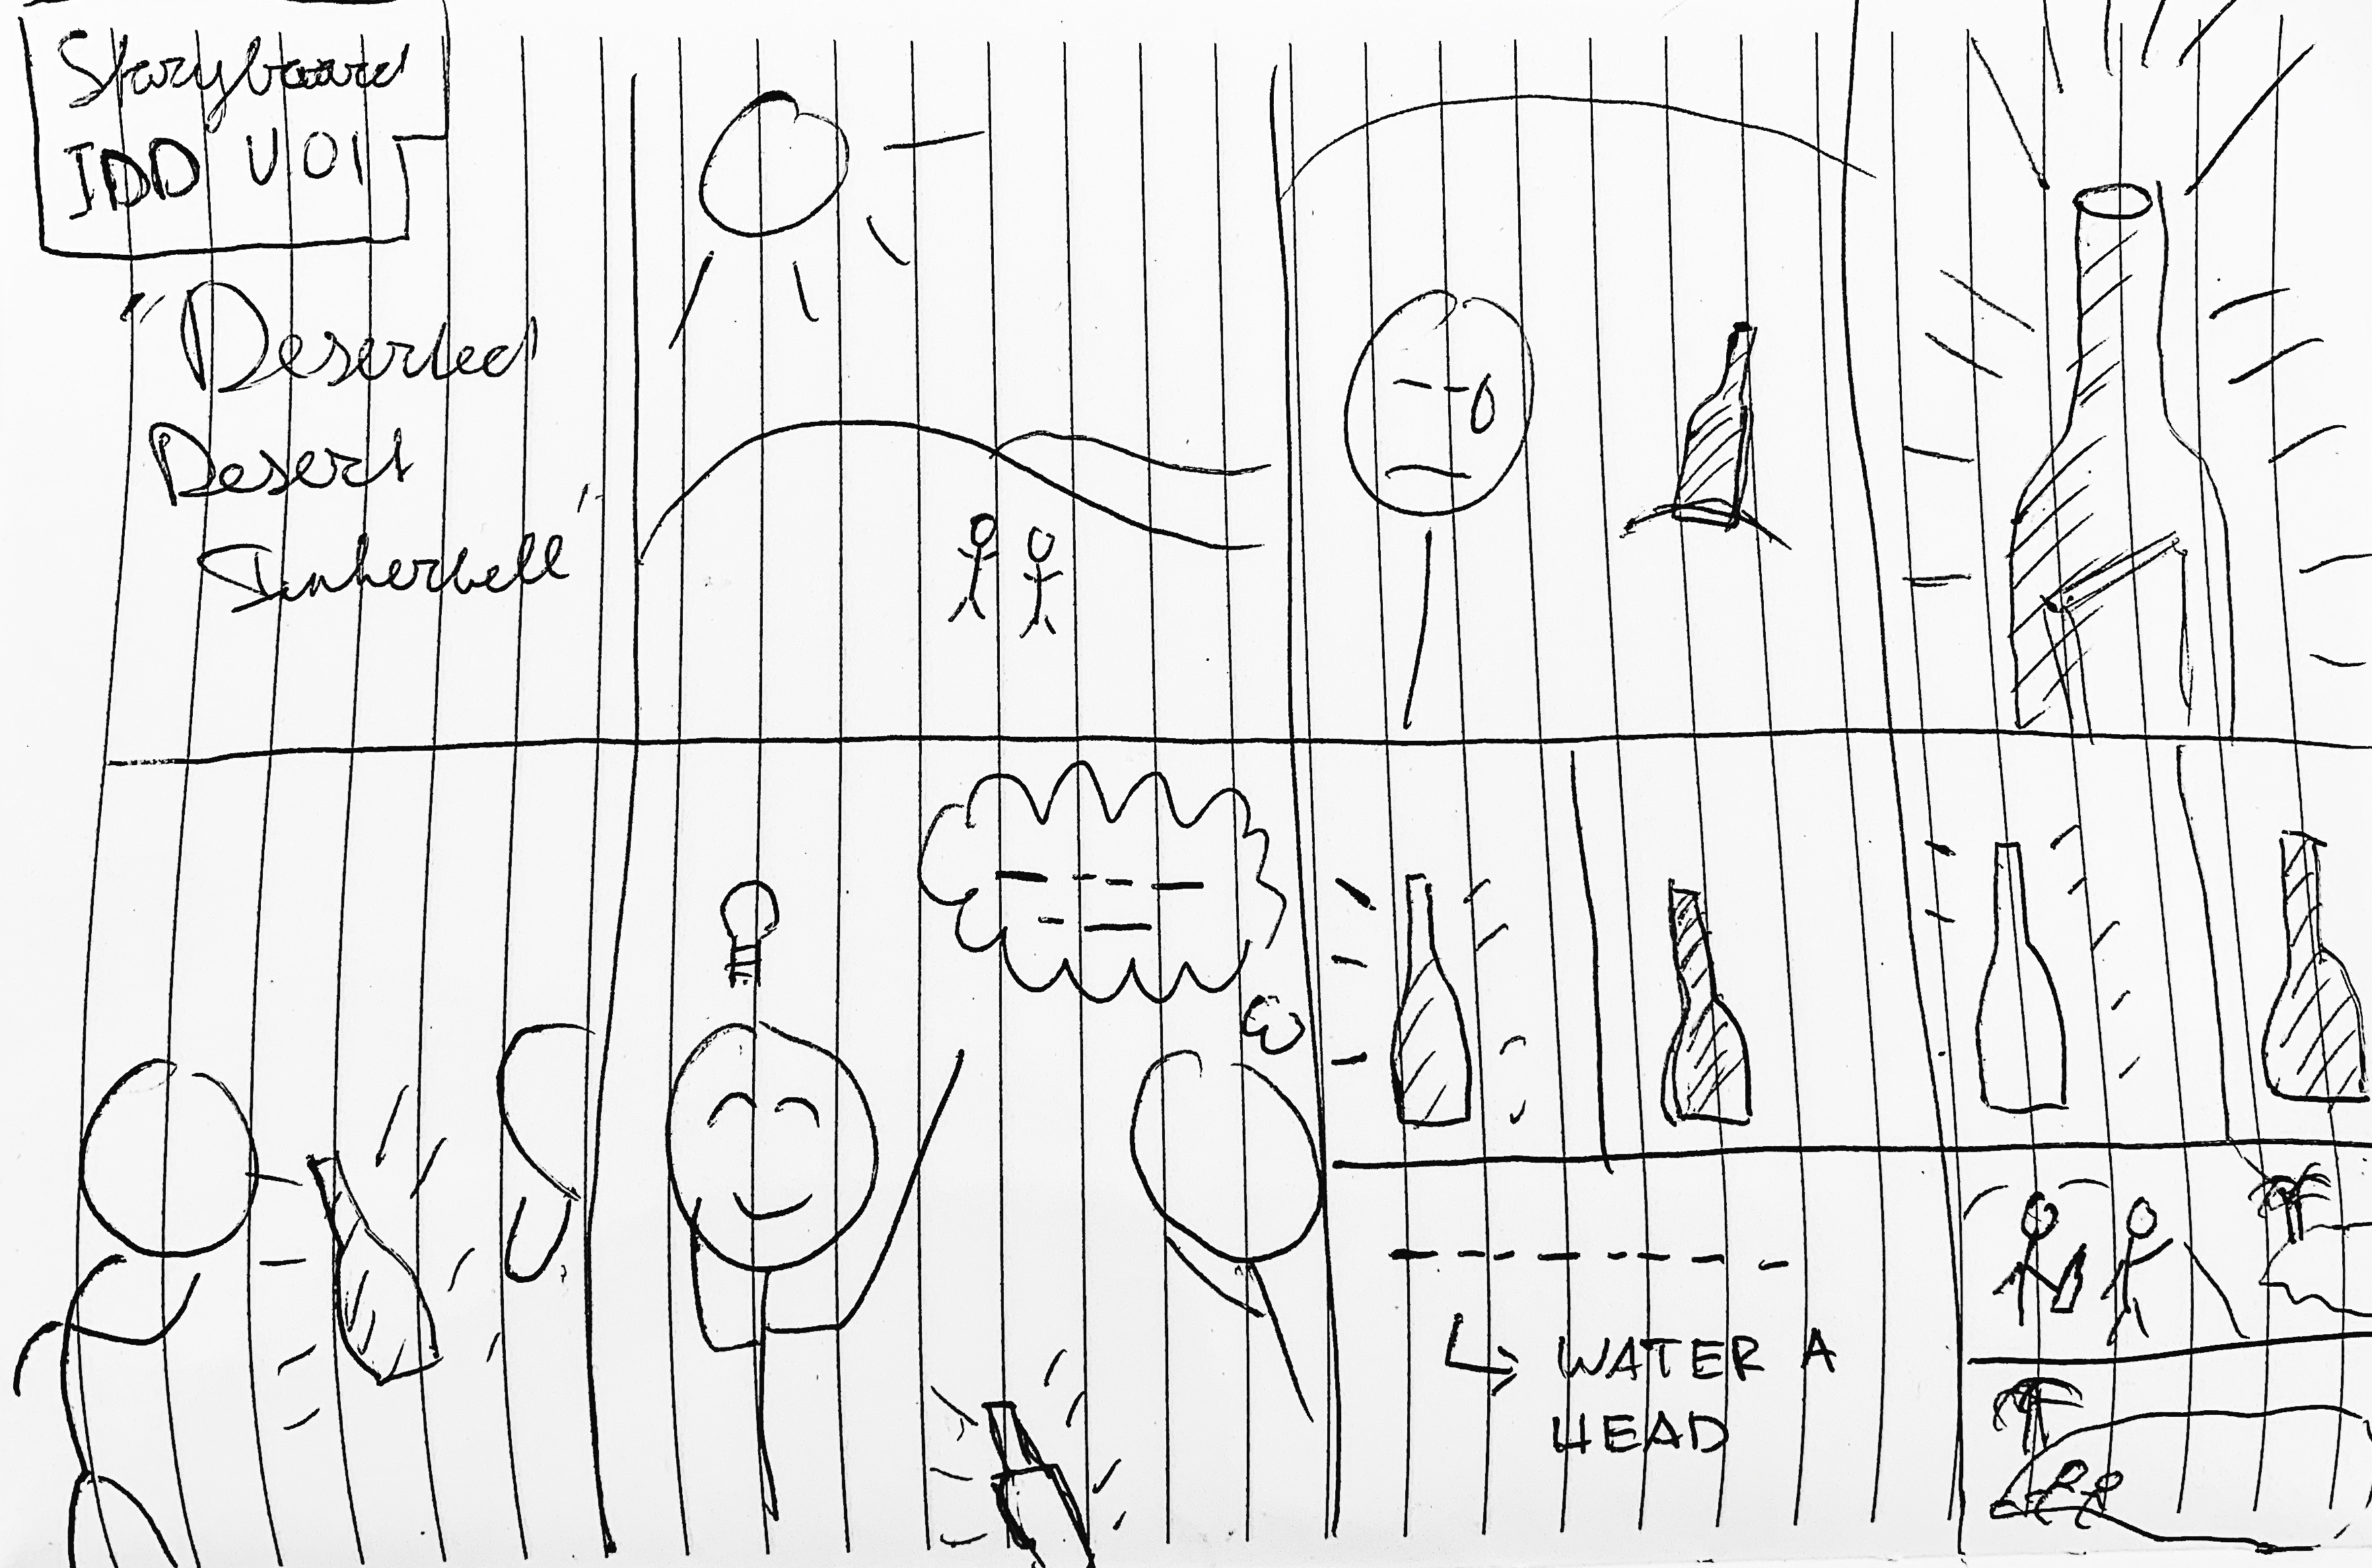 Storyboard
IDD V01
"Deserted
Desert
Tinkerbell"
WATER A
HEAD